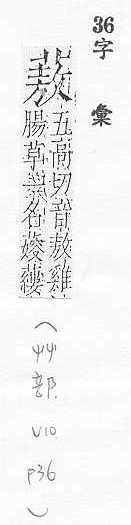 36字彙
蔜
五高切音敖雞
腸草葉名蔆蔞
(艸部
V10
P36
)